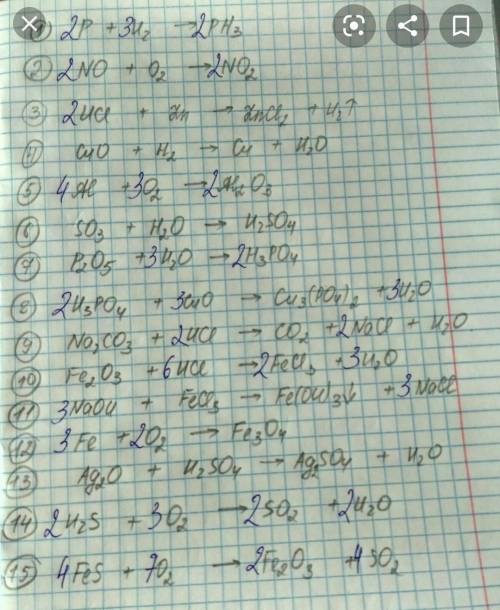 ① 2P + 3H₂ → 2PH₃
② 2NO + O₂ → 2NO₂
③ 2HCl + Zn → ZnCl₂ + H₂↑
④ CuO + H₂ → Cu + H₂O
⑤ 4Al + 3O₂ → 2Al₂O₃
⑥ SO₃ + H₂O → H₂SO₄
⑦ P₂O₅ + 3H₂O → 2H₃PO₄
⑧ 2H₃PO₄ + 3CuO → Cu₃(PO₄)₂ + 3H₂O
⑨ Na₂CO₃ + 2HCl → CO₂ + 2NaCl + H₂O
⑩ Fe₂O₃ + 6HCl → 2FeCl₃ + 3H₂O
⑪ 3NaOH + FeCl₃ → Fe(OH)₃↓ + 3NaCl
⑫ 3Fe + 2O₂ → Fe₃O₄
⑬ Ag₂O + H₂SO₄ → Ag₂SO₄ + H₂O
⑭ 2H₂S + 3O₂ → 2SO₂ + 2H₂O
⑮ 4FeS + 7O₂ → 2Fe₂O₃ + 4SO₂